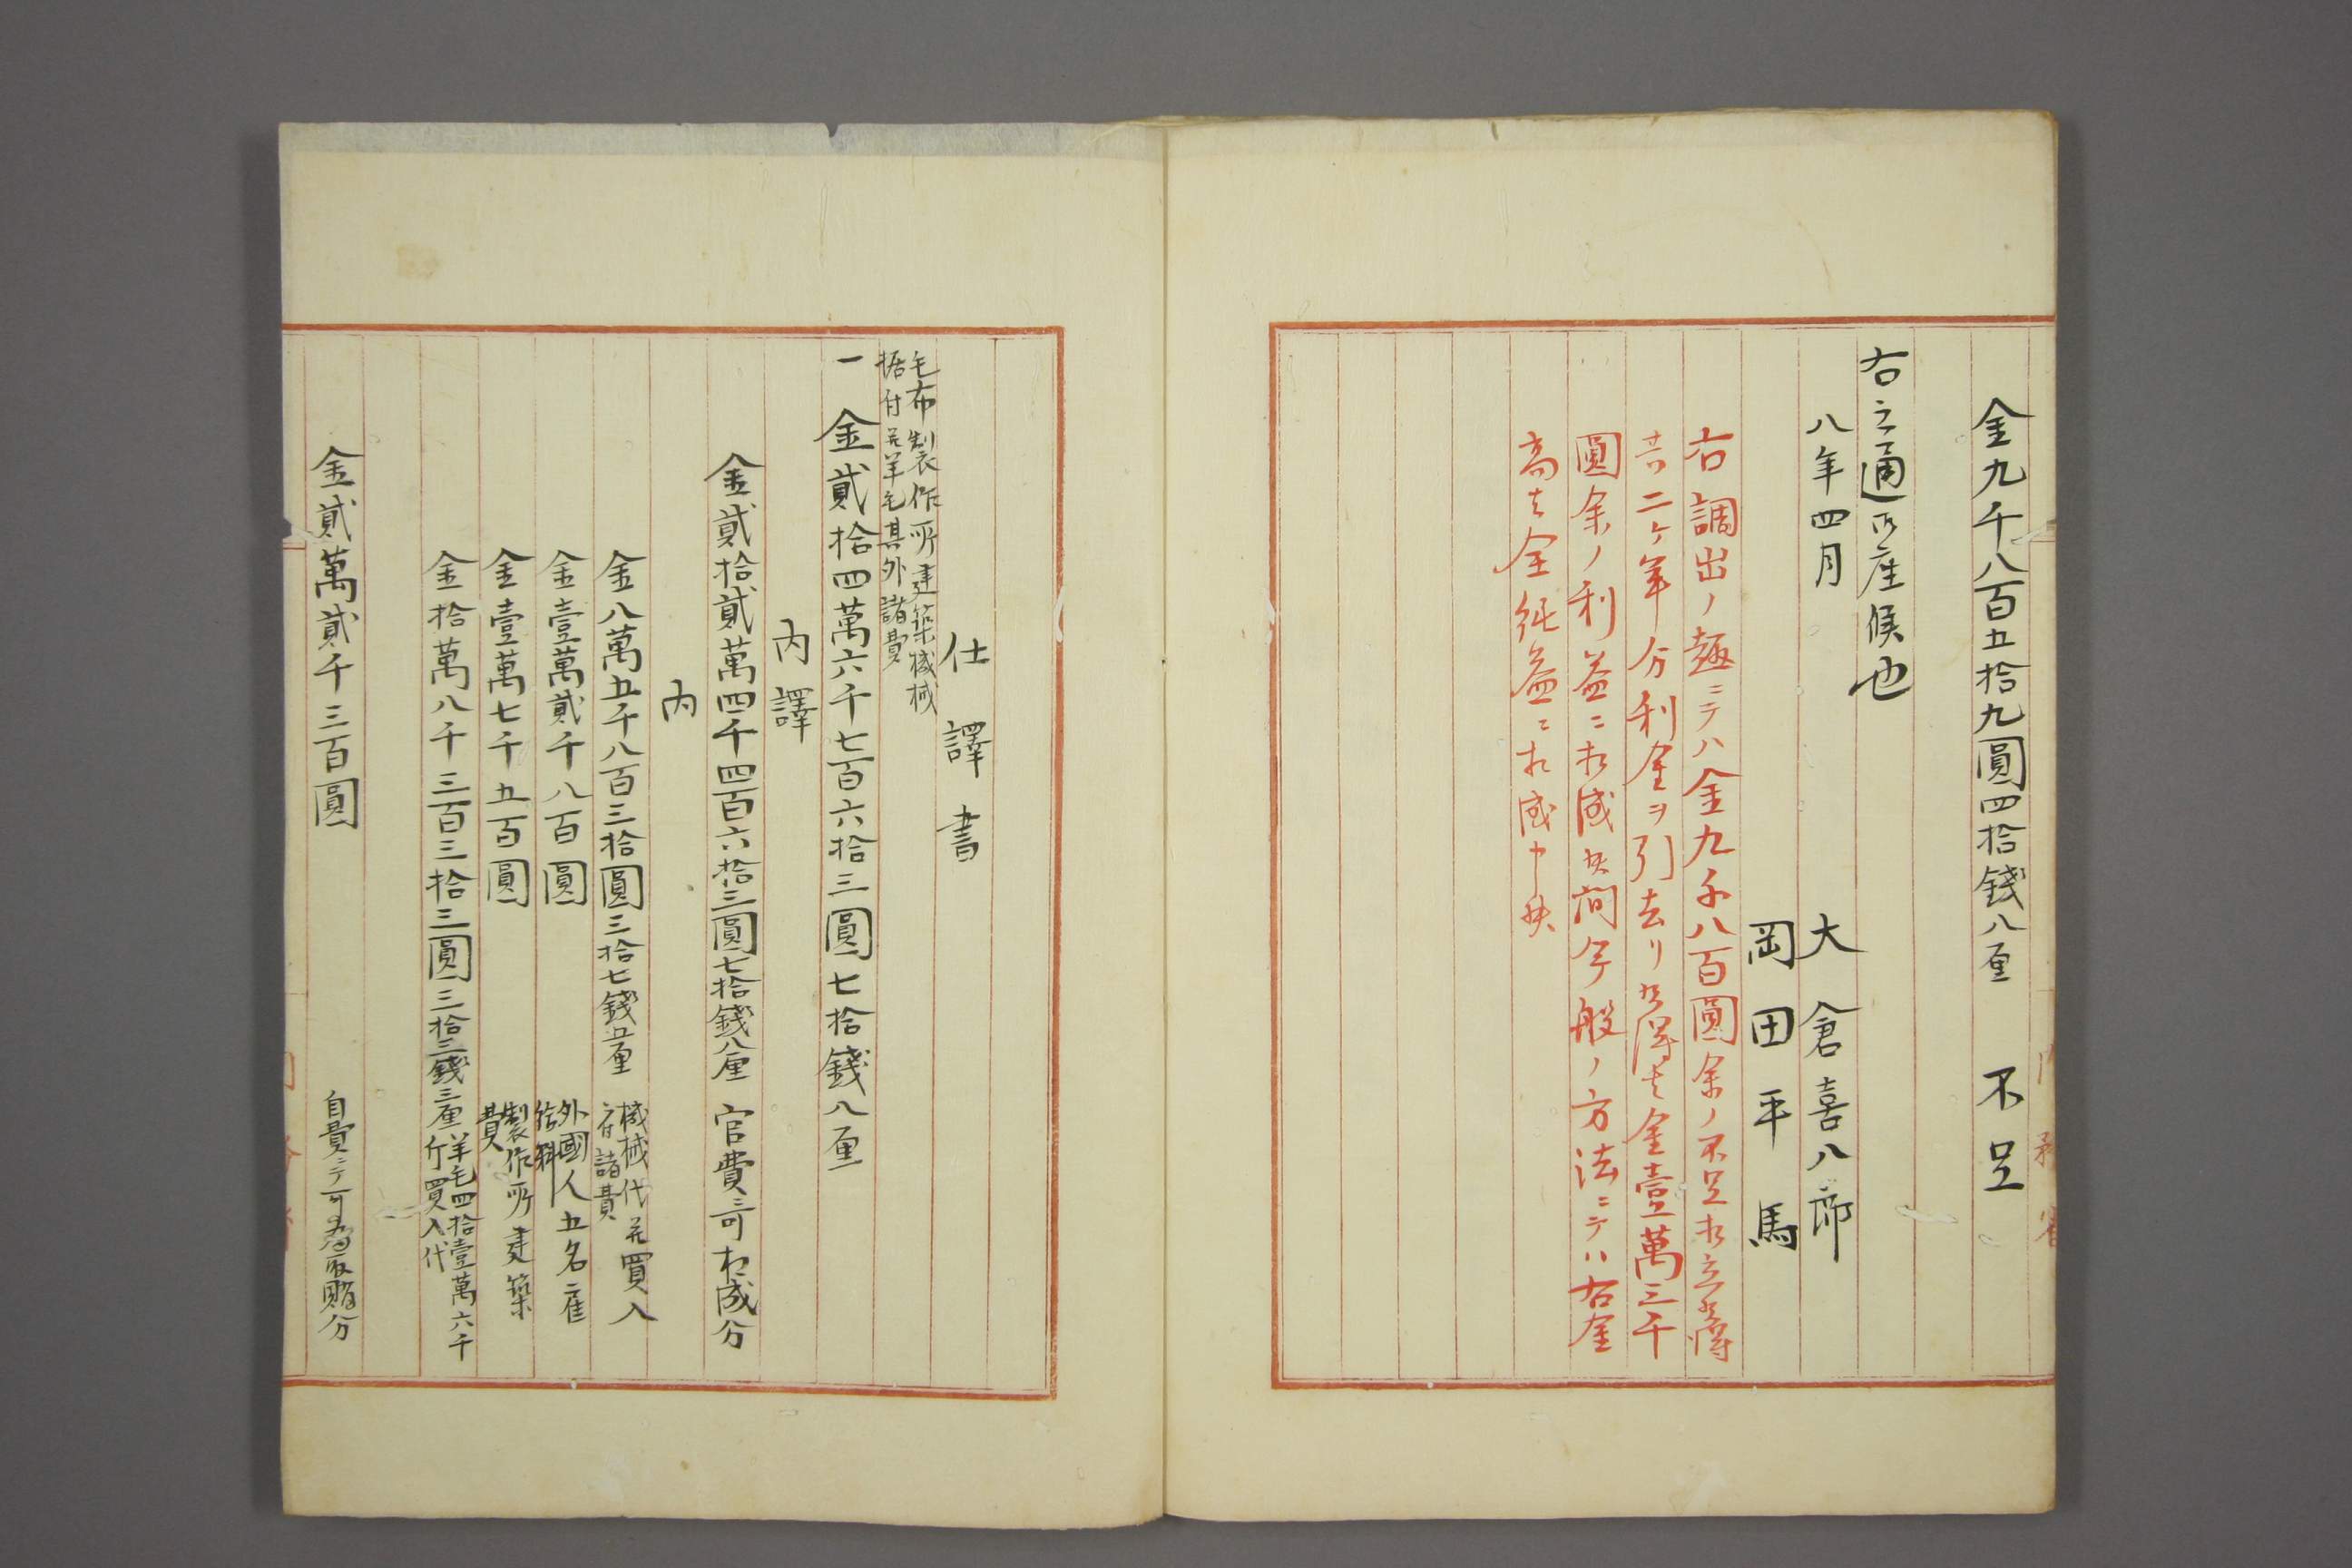 金九千八百五拾九圓四拾錢八厘 不足
右之通御座候也
八年四月
大倉喜八郎
岡田平馬
右調出ノ趣ニテハ金九千八百圓余ノ不足相立候得
共二ヶ年分利金ヲ引去リ候得ハ金壹萬三千
圓余ノ利益ニ相成候間今般ノ方法ニテハ右金
高ハ全純益ニ相成申候
仕譯書
毛布製作所建築機械
据付並羊毛其外諸費
一 金貳拾四萬六千七百六拾三圓七拾錢八厘
内譯
金貳拾貳萬四千四百六拾三圓七拾錢八厘 官費ニ可相成分
内
金八萬五千八百三拾圓三拾七錢五厘 機械代並買入
諸費
金壹萬貳千八百圓 外國人五名雇
給料
金壹萬七千五百圓 製作所建築
費
金拾萬八千三百三拾三圓三拾三錢三厘 羊毛四拾壹萬六千
斤買入代
金貳萬貳千三百圓 自費ニテ可為取賄分